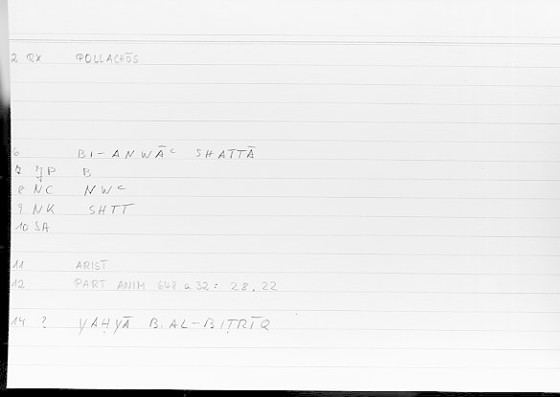 2 RX POLLACHŌS
6 BI-ANWĀᶜ SHATTĀ
7 JP B
8 NC NWᶜ
9 NK SHTT
10 SA
11 ARIST
12 PART ANIM 648 a 32 : 28,22
14 ? YAḤYĀ B. AL-BIṬRĪQ